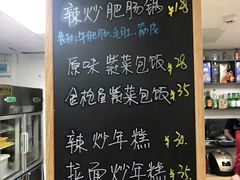 辣炒肥肠锅 ¥128
原味紫菜包饭 ¥28
金枪鱼紫菜包饭 ¥35
辣炒年糕 ¥30
拉面炒年糕 ¥35